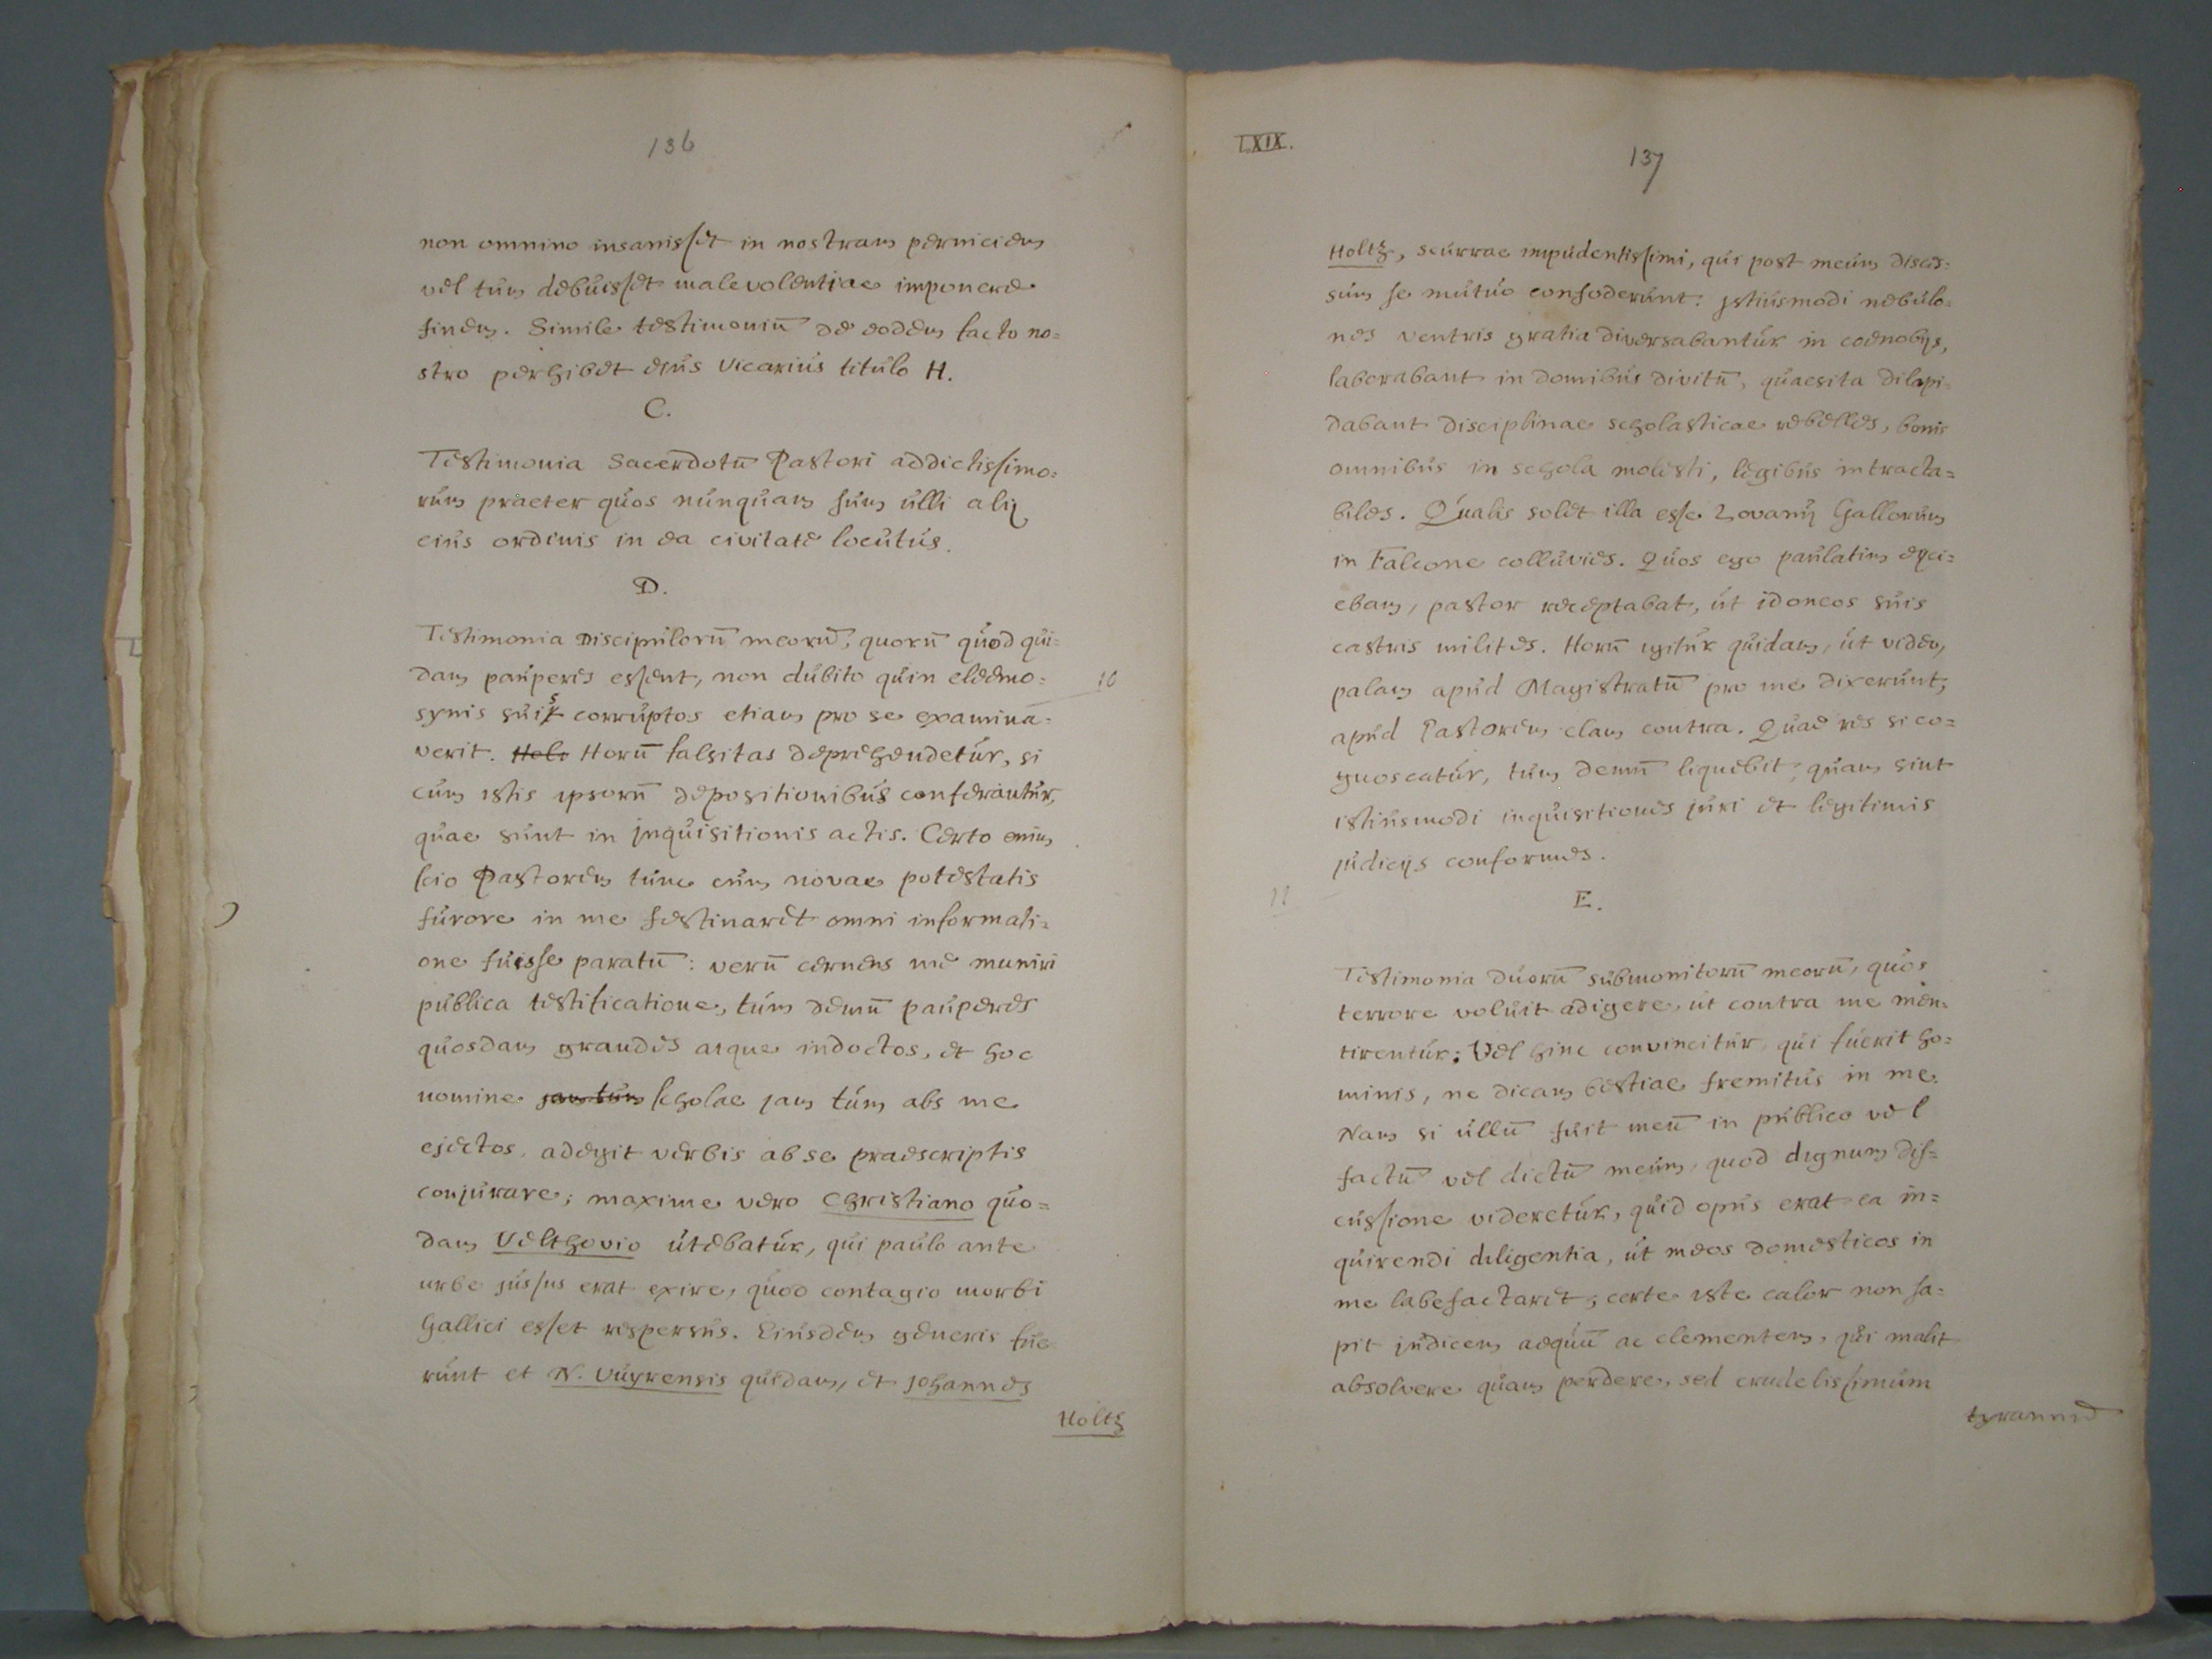 136
non omnino insanisset in nostram perniciem
vel tum debuisset malevolentiae imponere
finem. Simile testimoniū de eodem facto no=
stro perhibet ejus vicarius titulo H.
C.
Testimonia Sacerdotū Pastori addictissimo=
rum praeter quos nunquam sum ulli alij
eius ordinis in ea civitate locutus.
D.
Testimonia Discipulorū meorū, quorū quod qui=
dam pauperes essent, non dubito quin eleemo=
10
synis suis corruptos etiam pro se examina=
verit. Hols Horū falsitas deprehendetur, si
cum istis ipsorū depositionibus conferantur,
quae sunt in jnquisitionis actis. Certo enim
scio Pastorem tunc cum novae potestatis
furore in me festinaret omni informati=
one fuisse paratū: verū cernens me muniri
publica testificatione, tum demū pauperes
quosdam grandes atque indoctos, et hoc
nomine jam tum scholae jam tum abs me
ejectos, adegit verbis ab se praescriptis
conjurare; maxime vero Christiano quo=
dam Velthovio utebatur, qui paulo ante
urbe jussus erat exire, quod contagio morbi
Gallici esset respersus. Eiusdem generis fue
runt et N. Vuyrensis quidam, et Johannes
Holtz
LXIX.
137
Holtz, scurrae impudentissimi, qui post meum disces=
sum se mutuo confoderunt: jstiusmodi nebulo=
nes ventris gratia diversabantur in coenobijs,
laborabant in domibus divitū, quaesita dilapi=
dabant disciplinae scholasticae rebelles, bonis
omnibus in schola molesti, legibus intracta=
biles. Qualis solet illa esse Lovanij Gallorum
in Falcone colluvies. Quos ego paulatim ejci=
ebam, pastor receptabat, ut idoneos suis
castris milites. Horū igitur quidam, ut video,
palam apud Magistratū pro me dixerunt,
apud Pastorem clam contra. Quae res si co=
gnoscatur, tum demū liquebit, quam sint
istiusmodi inquisitiones juri et legitimis
judicijs conformes.
11
E.
Testimonia duorū submonitorū meorū, quos
terrore voluit adigere, ut contra me men=
tirentur: Vel hinc convincitur, qui fuerit ho=
minis, ne dicam bestiae fremitus in me.
Nam si ullū fuit meū in publico vel
factū vel dictū meum, quod dignum dis=
cussione videretur, quid opus erat ea in=
quirendi diligentia, ut meos domesticos in
me labefactaret; certe iste calor non sa=
pit judicem aequū ac clementem, qui malit
absolvere quam perdere, sed crudelissimum
tyrannū